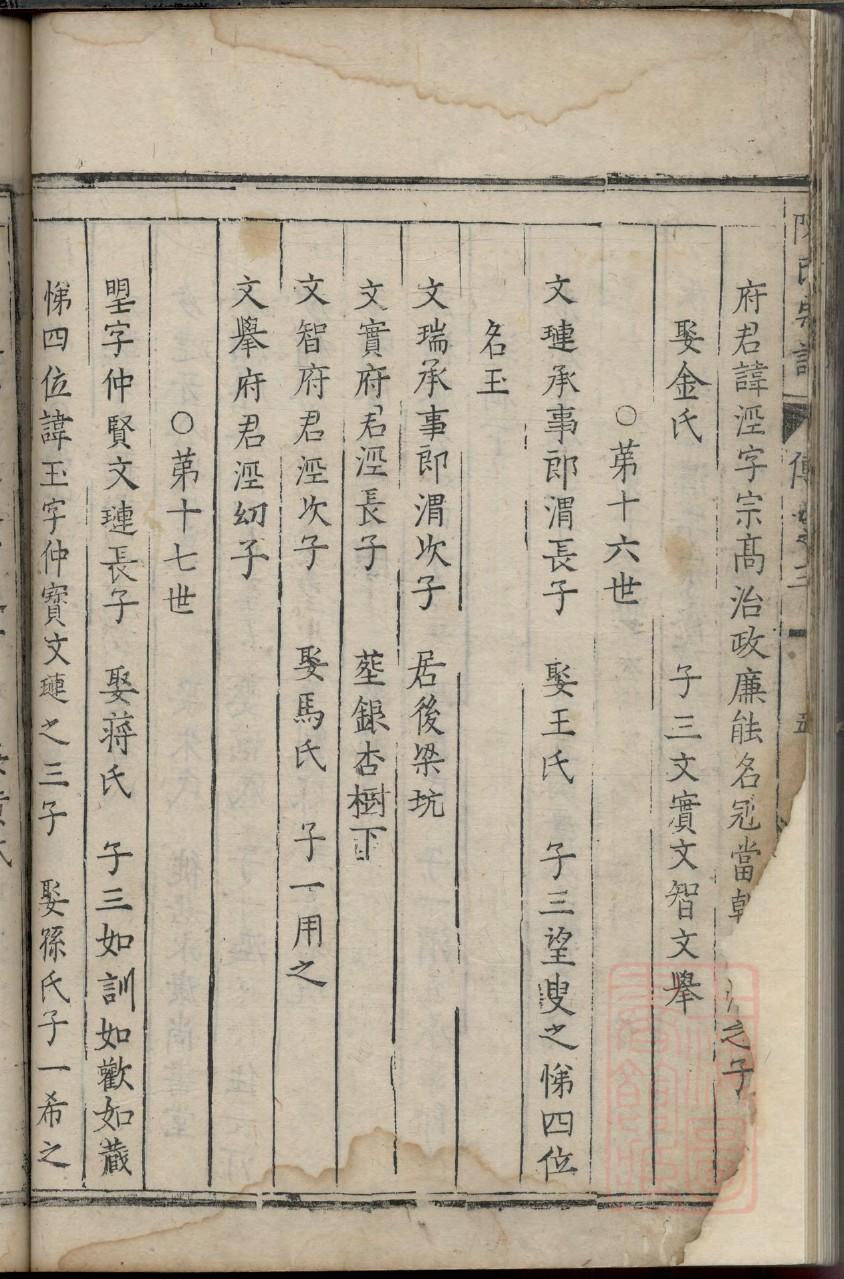 府君諱溼字宗髙治政廉能名冠當朝之子
娶金氏　子三文實文智文擧
○苐十六世
文璉承事郎渭長子　娶王氏　子三望叟之悌四位
名玉
文瑞承事郎渭次子　居後梁坑
文實府君溼長子　塟銀杏樹下
文智府君溼次子　娶馬氏　子一用之
文擧府君溼㓜子
○苐十七世
朢字仲賢文璉長子　娶蔣氏　子三如訓如歡如蕺
悌四位諱玉字仲寳文璉之三子　娶孫氏子一希之